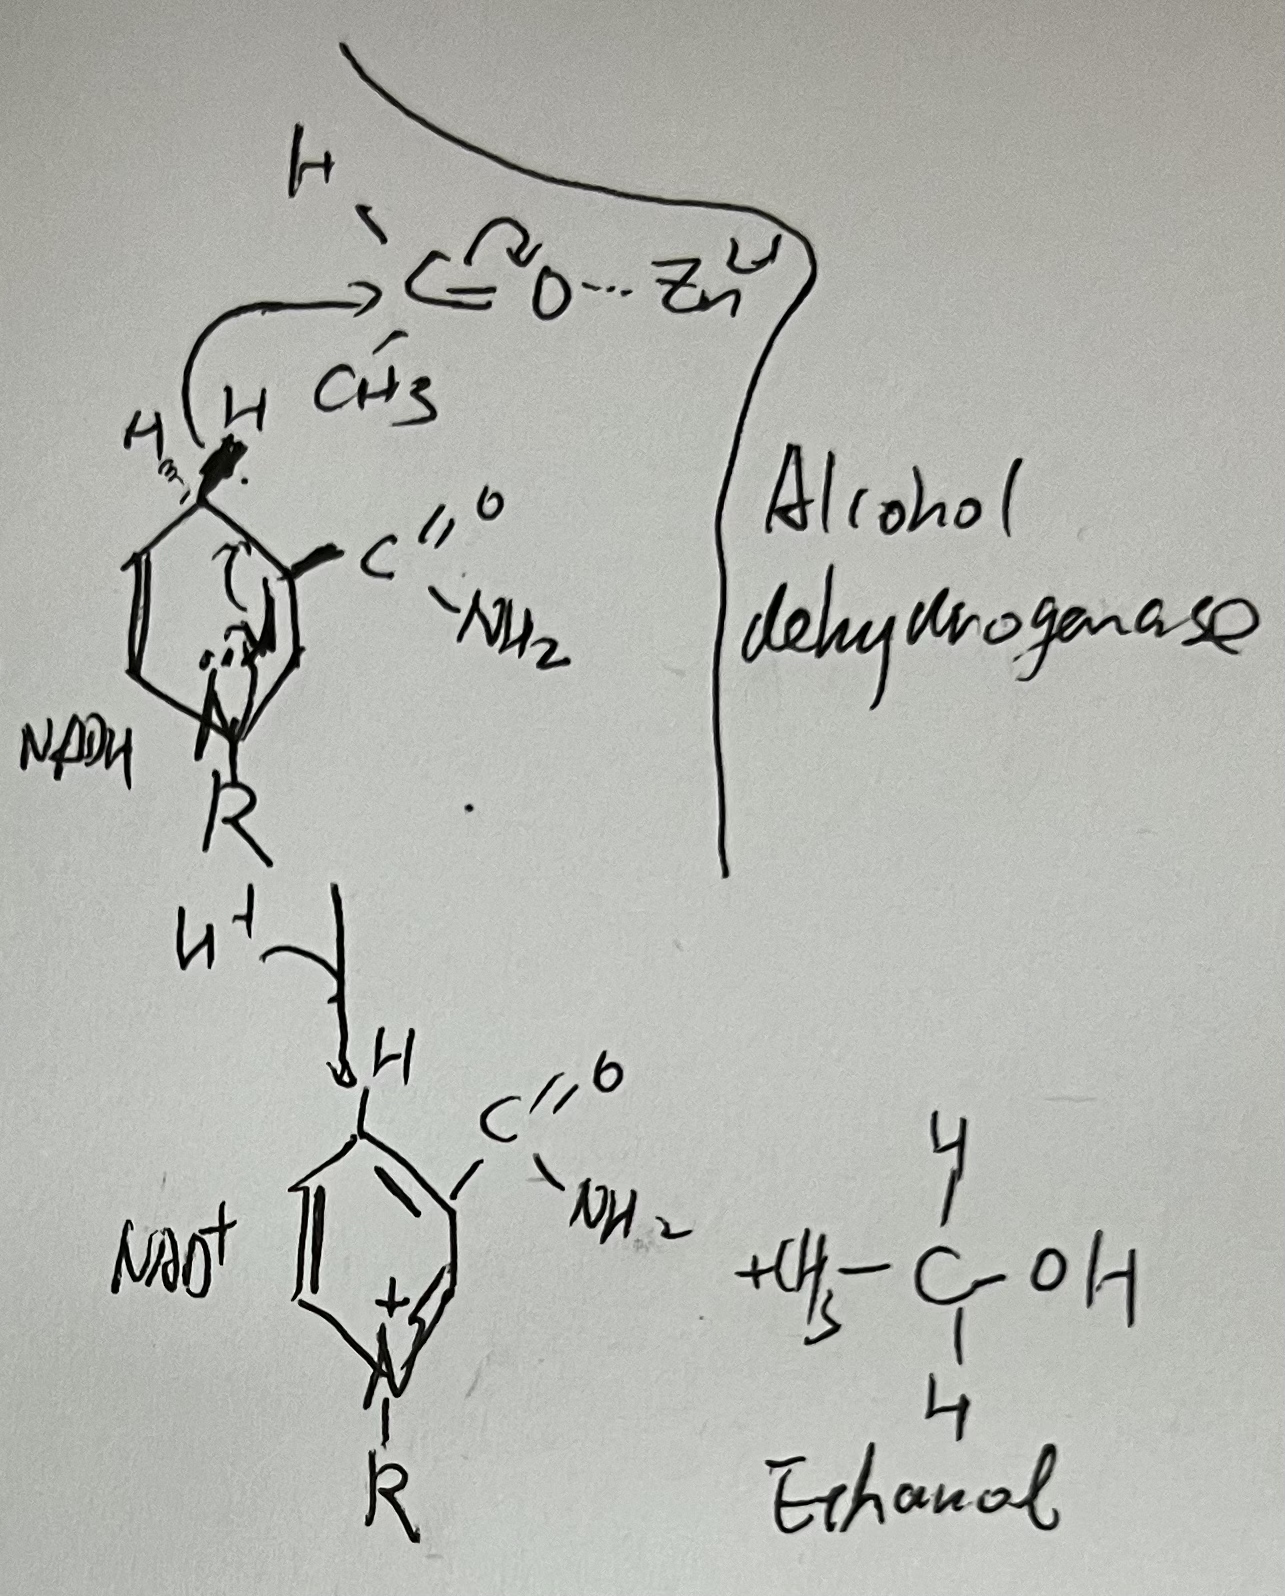 H
C=O···Zn
CH3
H H
C=O
NH2
Alcohol
dehydrogenase
NADH
N
R
H+
H
C=O
NH2
NAD+
+
N
R
H
+CH3-C-OH
H
Ethanol